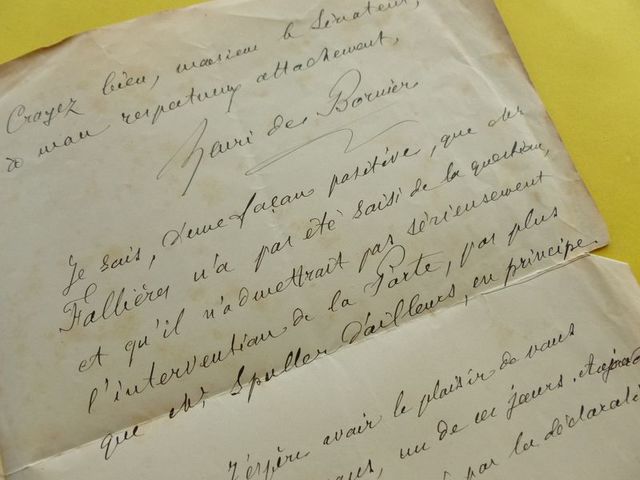 Croyez bien, monsieur le Sénateur,
à mon respectueux attachement,
Henri de Bornier
Je sais, d'une façon positive, que Mr
Fallières n'a pas été saisi de la question,
et qu'il n'admettrait pas sérieusement
l'intervention de la Porte, pas plus
que Mr Spuller d'ailleurs, en principe.
J'espère avoir le plaisir de vous
un de ces jours.
par la déclarati